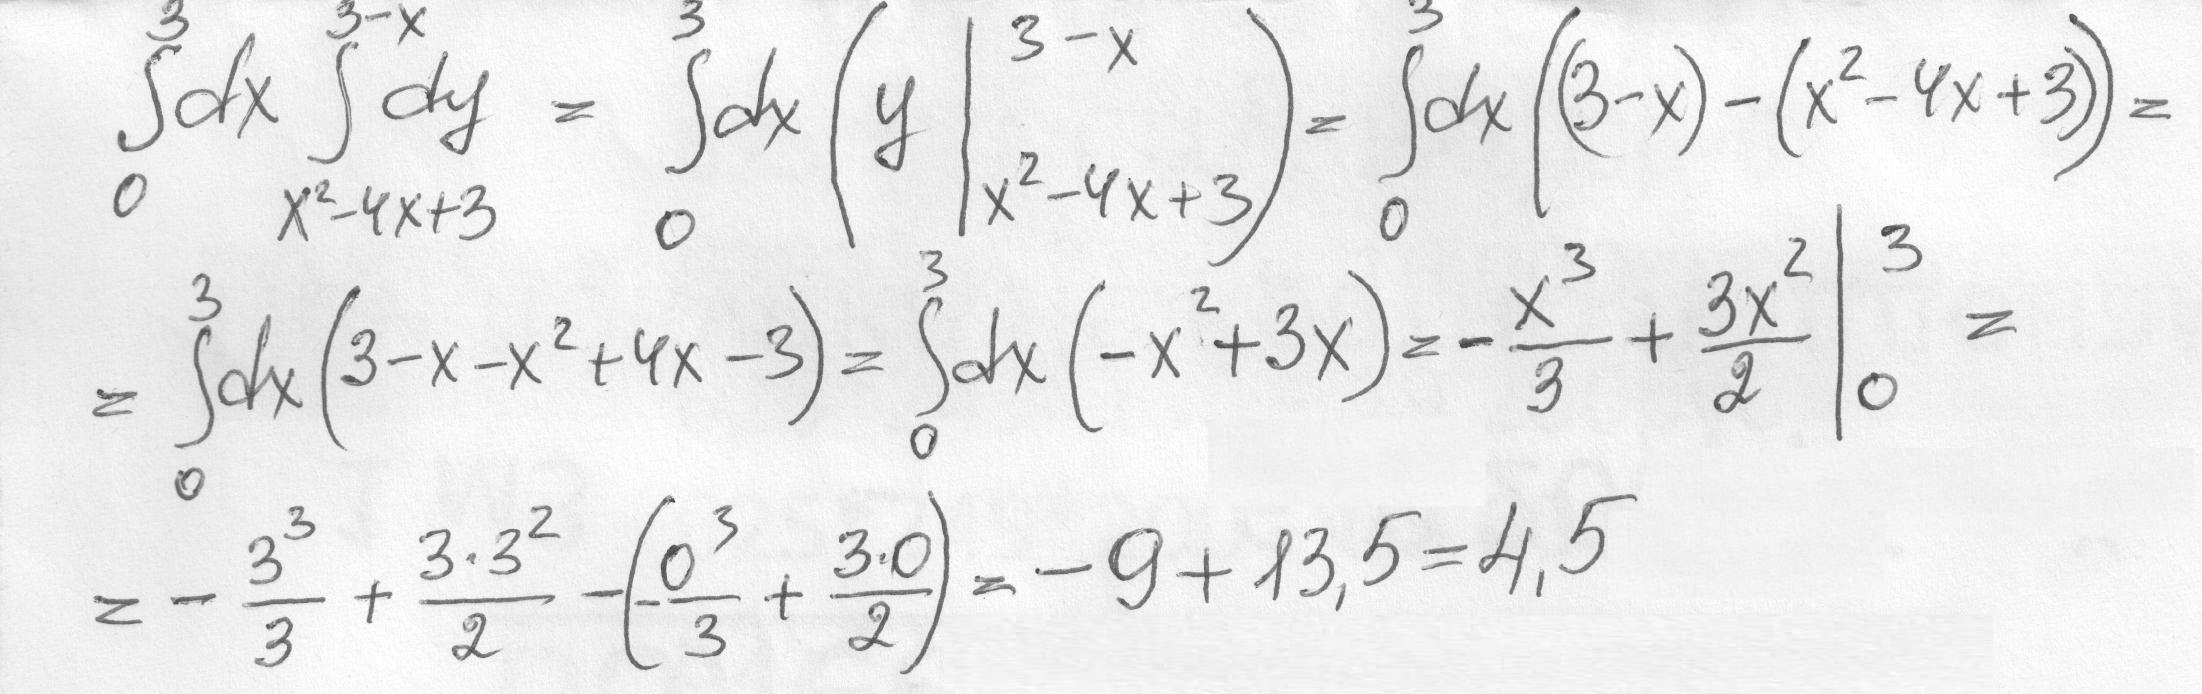 ∫₀³ dx ∫_{x²-4x+3}^{3-x} dy = ∫₀³ dx (y |_{x²-4x+3}^{3-x}) = ∫₀³ dx ((3-x) - (x²-4x+3)) =
= ∫₀³ dx (3-x-x²+4x-3) = ∫₀³ dx (-x²+3x) = -x³/3 + 3x²/2 |₀³ =
= -3³/3 + 3·3²/2 - (-0³/3 + 3·0/2) = -9+13,5=4,5